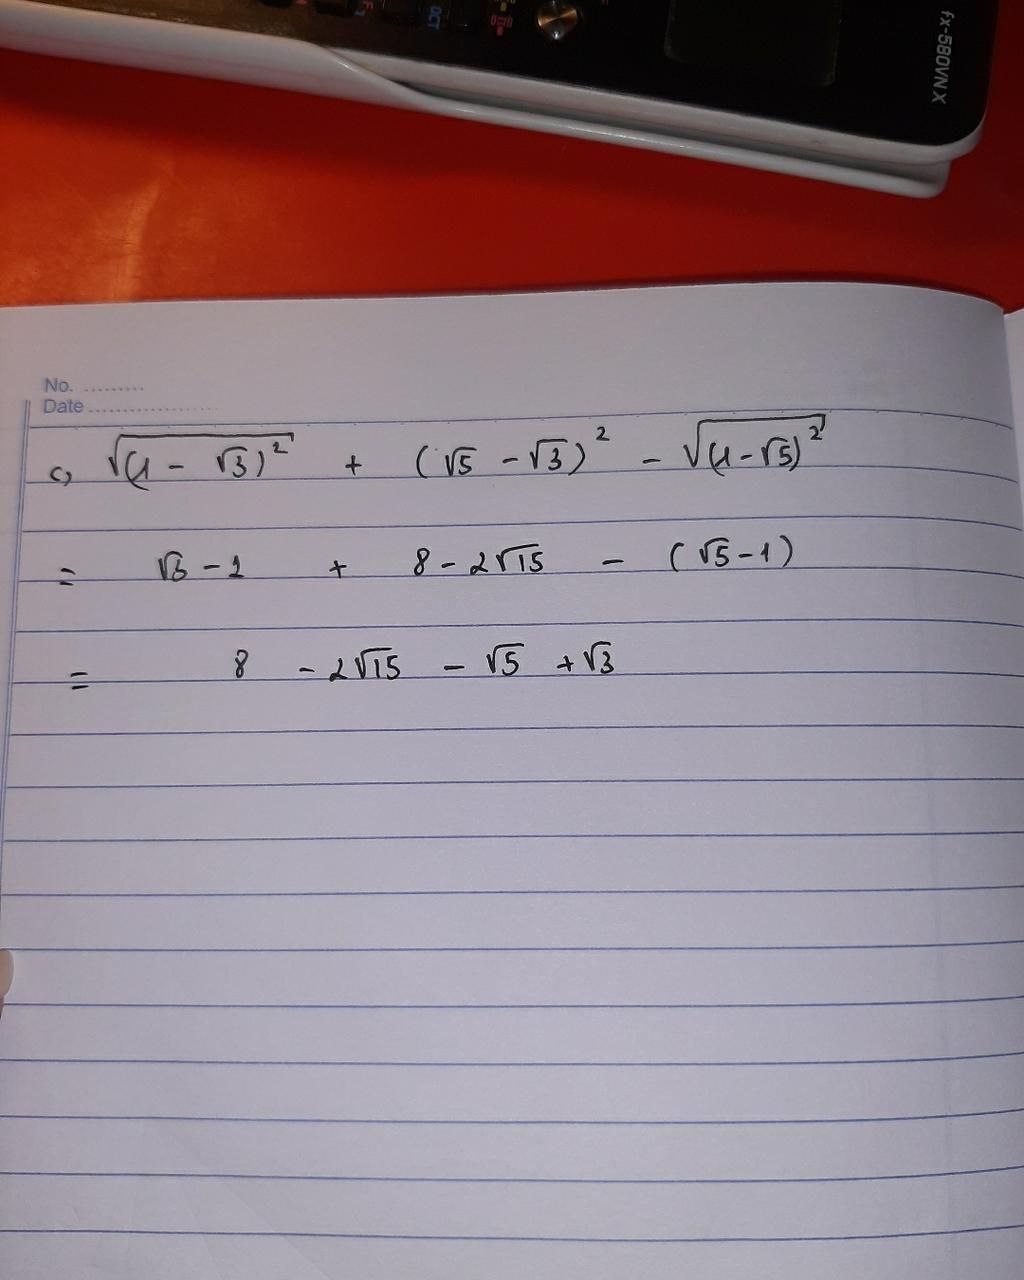 fx-580VNX
OCT
No. .........
Date ...................
c, √(1 - √3)² + (√5 - √3)² - √(1-√5)²
= √3 - 1 + 8 - 2√15 - (√5 - 1)
= 8 - 2√15 - √5 + √3